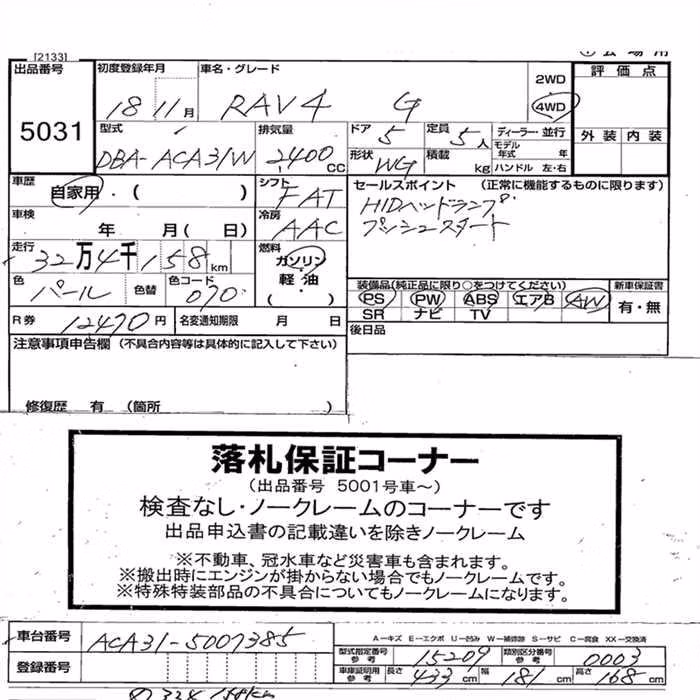 [2133]
出品番号 初度登録年月 車名・グレード 2WD 評価点
5031 18 11月 RAV4 G 4WD
型式 排気量 ドア 定員 ディーラー・並行 外装 内装
DBA-ACA31W 2400CC 5 5人 モデル年式 年
形状 WG 積載 kg ハンドル 左・右
車歴 自家用・( ) シフト FAT セールスポイント (正常に機能するものに限ります)
車検 年 月( 日) 冷房 AAC HIDヘッドランプ
プッシュスタート
走行 32万4千158km 燃料 ガソリン・軽油
色 パール 色替 色コード 070 装備品(純正品に限り○をつけてください) 新車保証書
PS PW ABS エアB AW 有・無
SR ナビ TV
R券 12470円 名変通知期限 月 日 後日品
注意事項申告欄 (不具合内容等は具体的に記入して下さい)
修復歴 有 (箇所 )
落札保証コーナー
(出品番号 5001号車~)
検査なし・ノークレームのコーナーです
出品申込書の記載違いを除きノークレーム
※不動車、冠水車など災害車も含まれます。
※搬出時にエンジンが掛からない場合でもノークレームです。
※特殊特装部品の不具合についてもノークレームになります。
A-キズ E-エクボ U-凹み W-補修跡 S-サビ C-腐食 XX-交換済
車台番号 ACA31-5007385
型式指定番号 参考 15209 類別区分番号 参考 0003
登録番号 車庫証明用 参考 長さ 433cm 幅 181cm 高さ 168cm